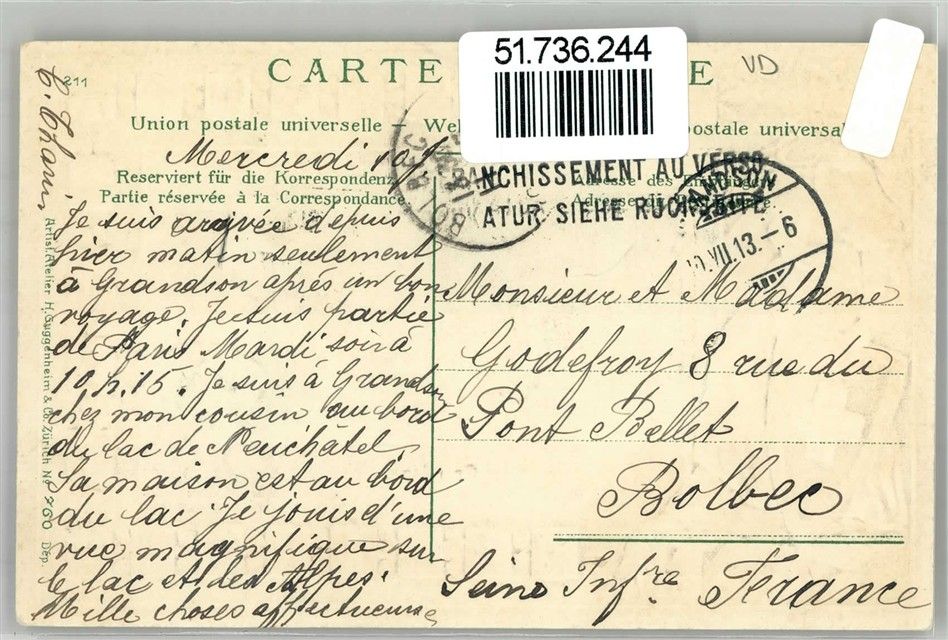 51.736.244
CARTE E
VD
211
Union postale universelle — Wel postale universal
Mercredi
Reserviert für die Korrespondenz
Partie réservée à la Correspondance
Je suis arrivée depuis
hier matin seulement
à Grandson après un bon
voyage. Je suis partie
de Paris Mardi soir à
10 h. 15. Je suis à Grandson
chez mon cousin au bord
du lac de Neuchâtel.
Sa maison est au bord
du lac Je jouis d'une
vue magnifique sur
le lac et les Alpes.
Mille choses affectueuses
Artist. Atelier H. Guggenheim & Co. Zürich No Dép.
ANCHISSEMENT AU VERSO
ATUR SIEHE RÜCKSEITE
Adresse des
ANDSON
VII.13.–6
BOLBEC
Monsieur et Madame
Godefroy 8 rue du
Pont Bellet
Bolbec
Seine Infre France